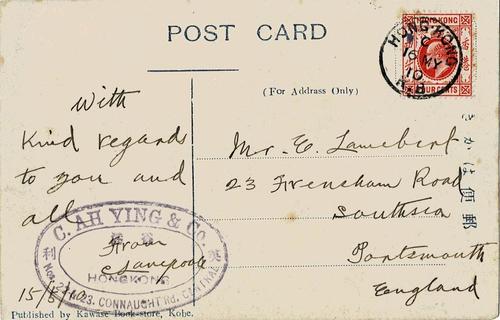 POST CARD
HONG-KONG
C
16 MY
10
K.B
HONGKONG
FOUR CENTS
(For Address Only)
With
Kind regards
to you and
all
From
Mr. E. Lambert
23 Frensham Road
Southsea
Portsmouth
England
C. AH YING & CO.
利
HONGKONG
CONNAUGHT RD. CENTRAL
15/5/10
きかは便郵
Published by Kawase Book-store, Kobe.